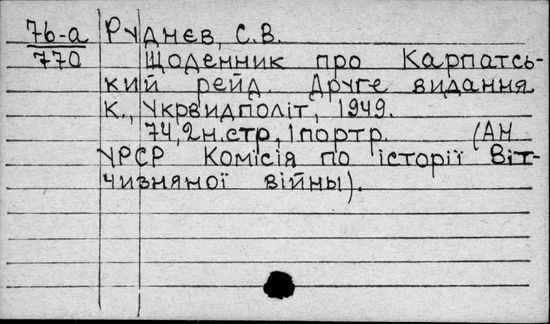 76-а Руднєв, С.В.
770 Щоденник про Карпатсь-
кий рейд. Друге видання.
К., Укрвидполіт, 1949.
74,2н.стр,1портр. (АН
УРСР Комісія по історії Віт-
чизняної війны).